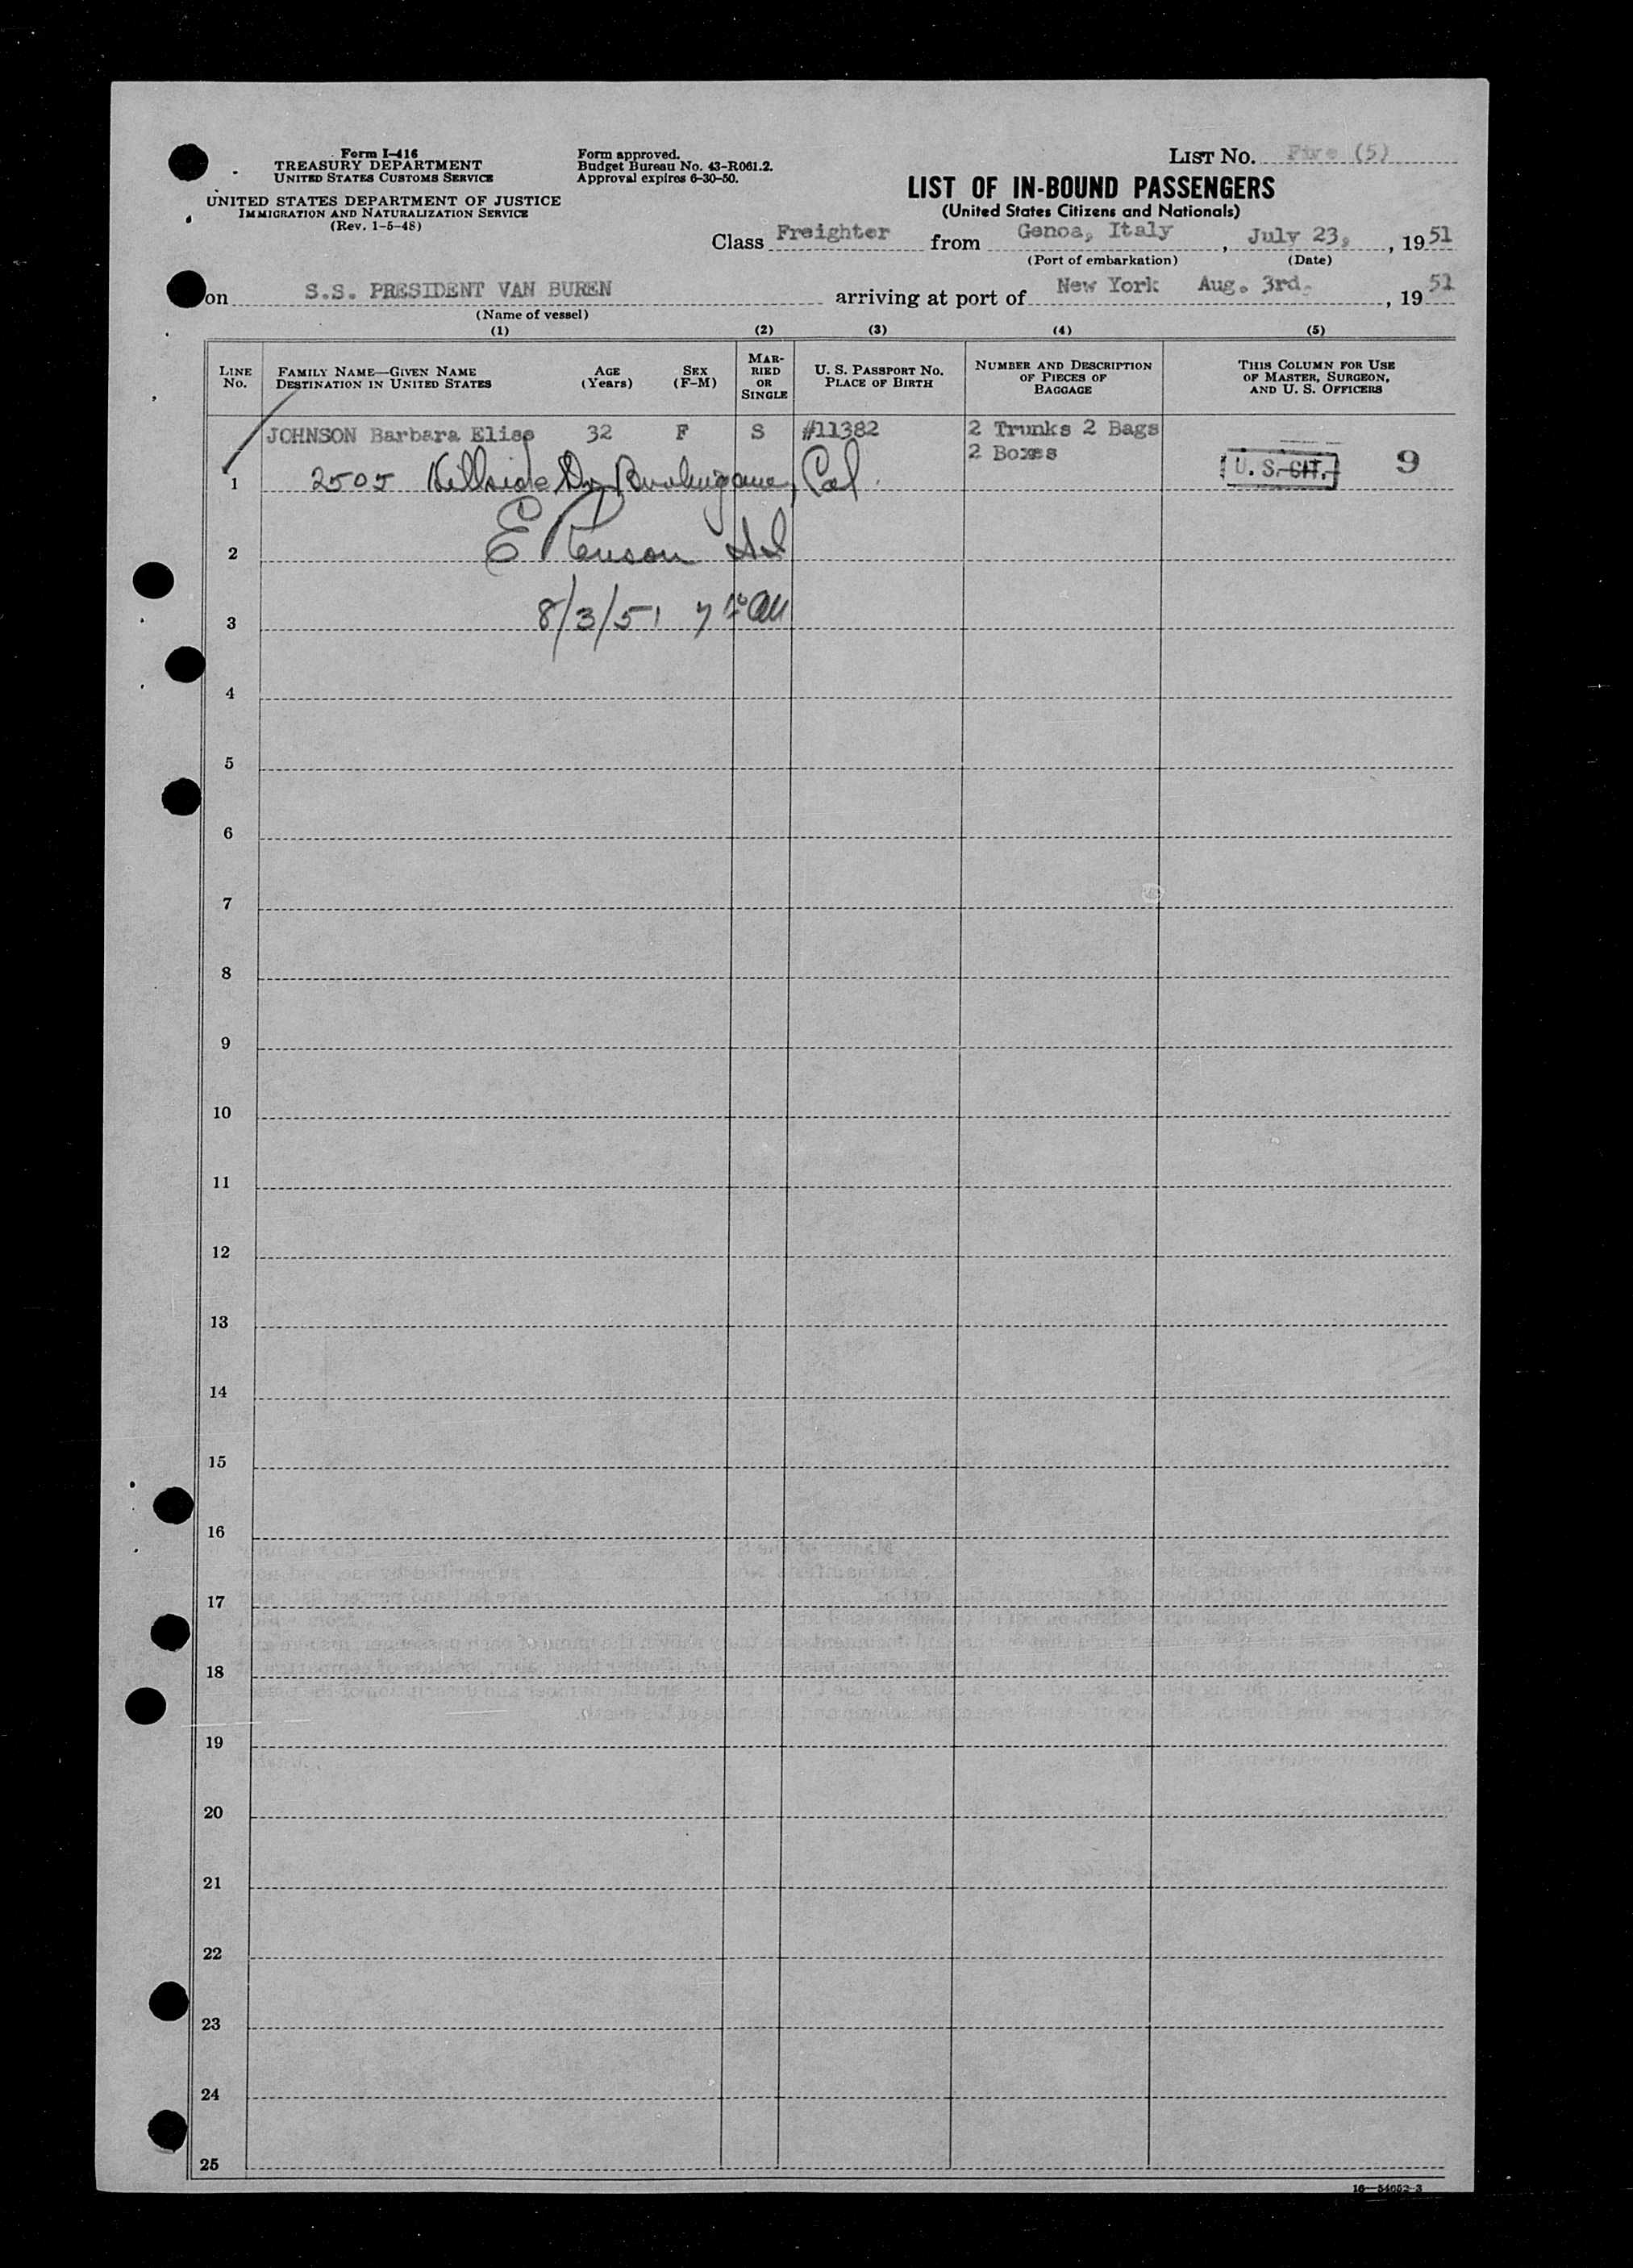 Form I-416
TREASURY DEPARTMENT
UNITED STATES CUSTOMS SERVICE
UNITED STATES DEPARTMENT OF JUSTICE
IMMIGRATION AND NATURALIZATION SERVICE
(Rev. 1-5-48)
Form approved.
Budget Bureau No. 43-R061.2.
Approval expires 6-30-50.
LIST NO. Five (5)
LIST OF IN-BOUND PASSENGERS
(United States Citizens and Nationals)
Class Freighter from Genoa, Italy, July 23, , 1951
(Port of embarkation) (Date)
on S.S. PRESIDENT VAN BUREN arriving at port of New York Aug. 3rd. , 19 51
(Name of vessel)
(1) (2) (3) (4) (5)
LINE No.
FAMILY NAME—GIVEN NAME
DESTINATION IN UNITED STATES
AGE (Years)
SEX (F-M)
MARRIED OR SINGLE
U. S. PASSPORT NO.
PLACE OF BIRTH
NUMBER AND DESCRIPTION
OF PIECES OF
BAGGAGE
THIS COLUMN FOR USE
OF MASTER, SURGEON,
AND U. S. OFFICERS
JOHNSON Barbara Elise 32 F S #11382 2 Trunks 2 Bags
2 Boxes
U. S. CIT. 9
1 2505 Hillside Dr Burlingame, Cal.
2
3 8/3/51
4
5
6
7
8
9
10
11
12
13
14
15
16
17
18
19
20
21
22
23
24
25
16—54052-3